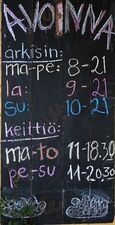 AVOINNA
arkisin:
ma-pe: 8-21
la: 9-21
su: 10-21
keittiö:
ma-to 11-18.30
pe-su 11-20.30